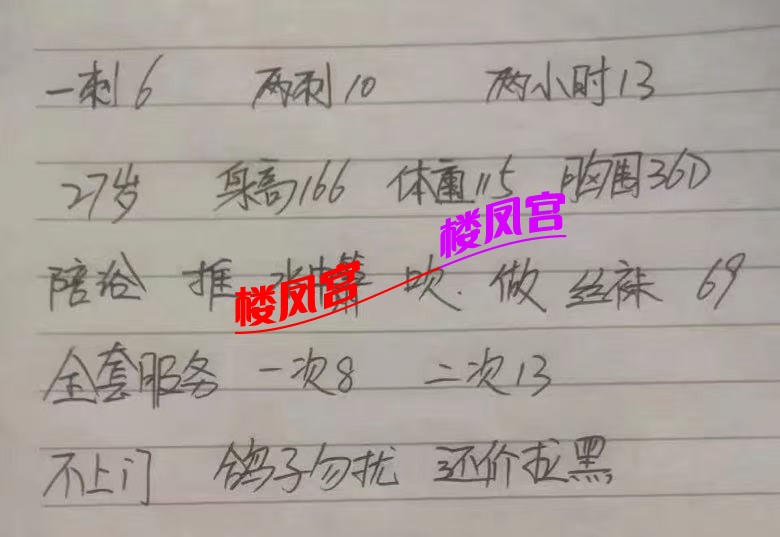 一刺6 两刺10 两小时13
27岁 身高166 体重115 胸围36D
楼凤宫
陪浴 推 吹.做 丝袜 69
楼凤宫
全套服务 一次8 二次13
不上门 鸽子勿扰 还价拉黑